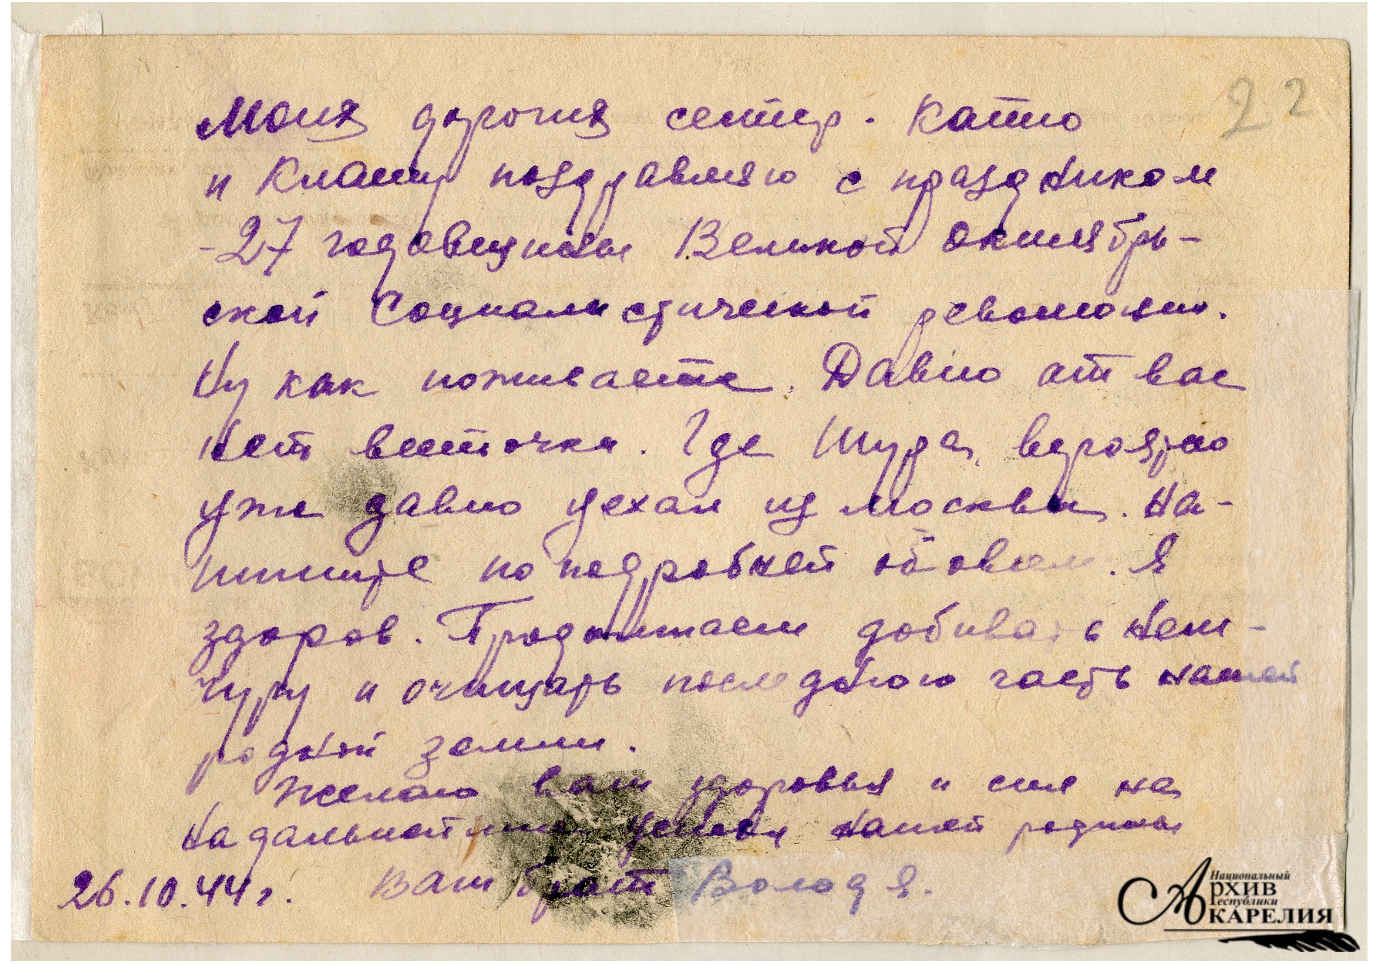 22
Моих дорогих сестер. Катю
и Клашу поздравляю с праздником
-27 годовщиной Великой октябрь-
ской Социалистической революции.
Ну как поживаете. Давно от вас
нет весточки. Где Шура, вероятно
уже давно уехал из Москвы. На-
пишите поподробней обо всем. Я
здоров. Продолжаем добивать нем-
чуру и очищать последнюю часть нашей
родной земли.
Желаю вам здоровья и сил на
на дальнейшие успехи нашей родины
26.10.44 г. Ваш брат Володя.
Национальный
Архив
Республики
Карелия